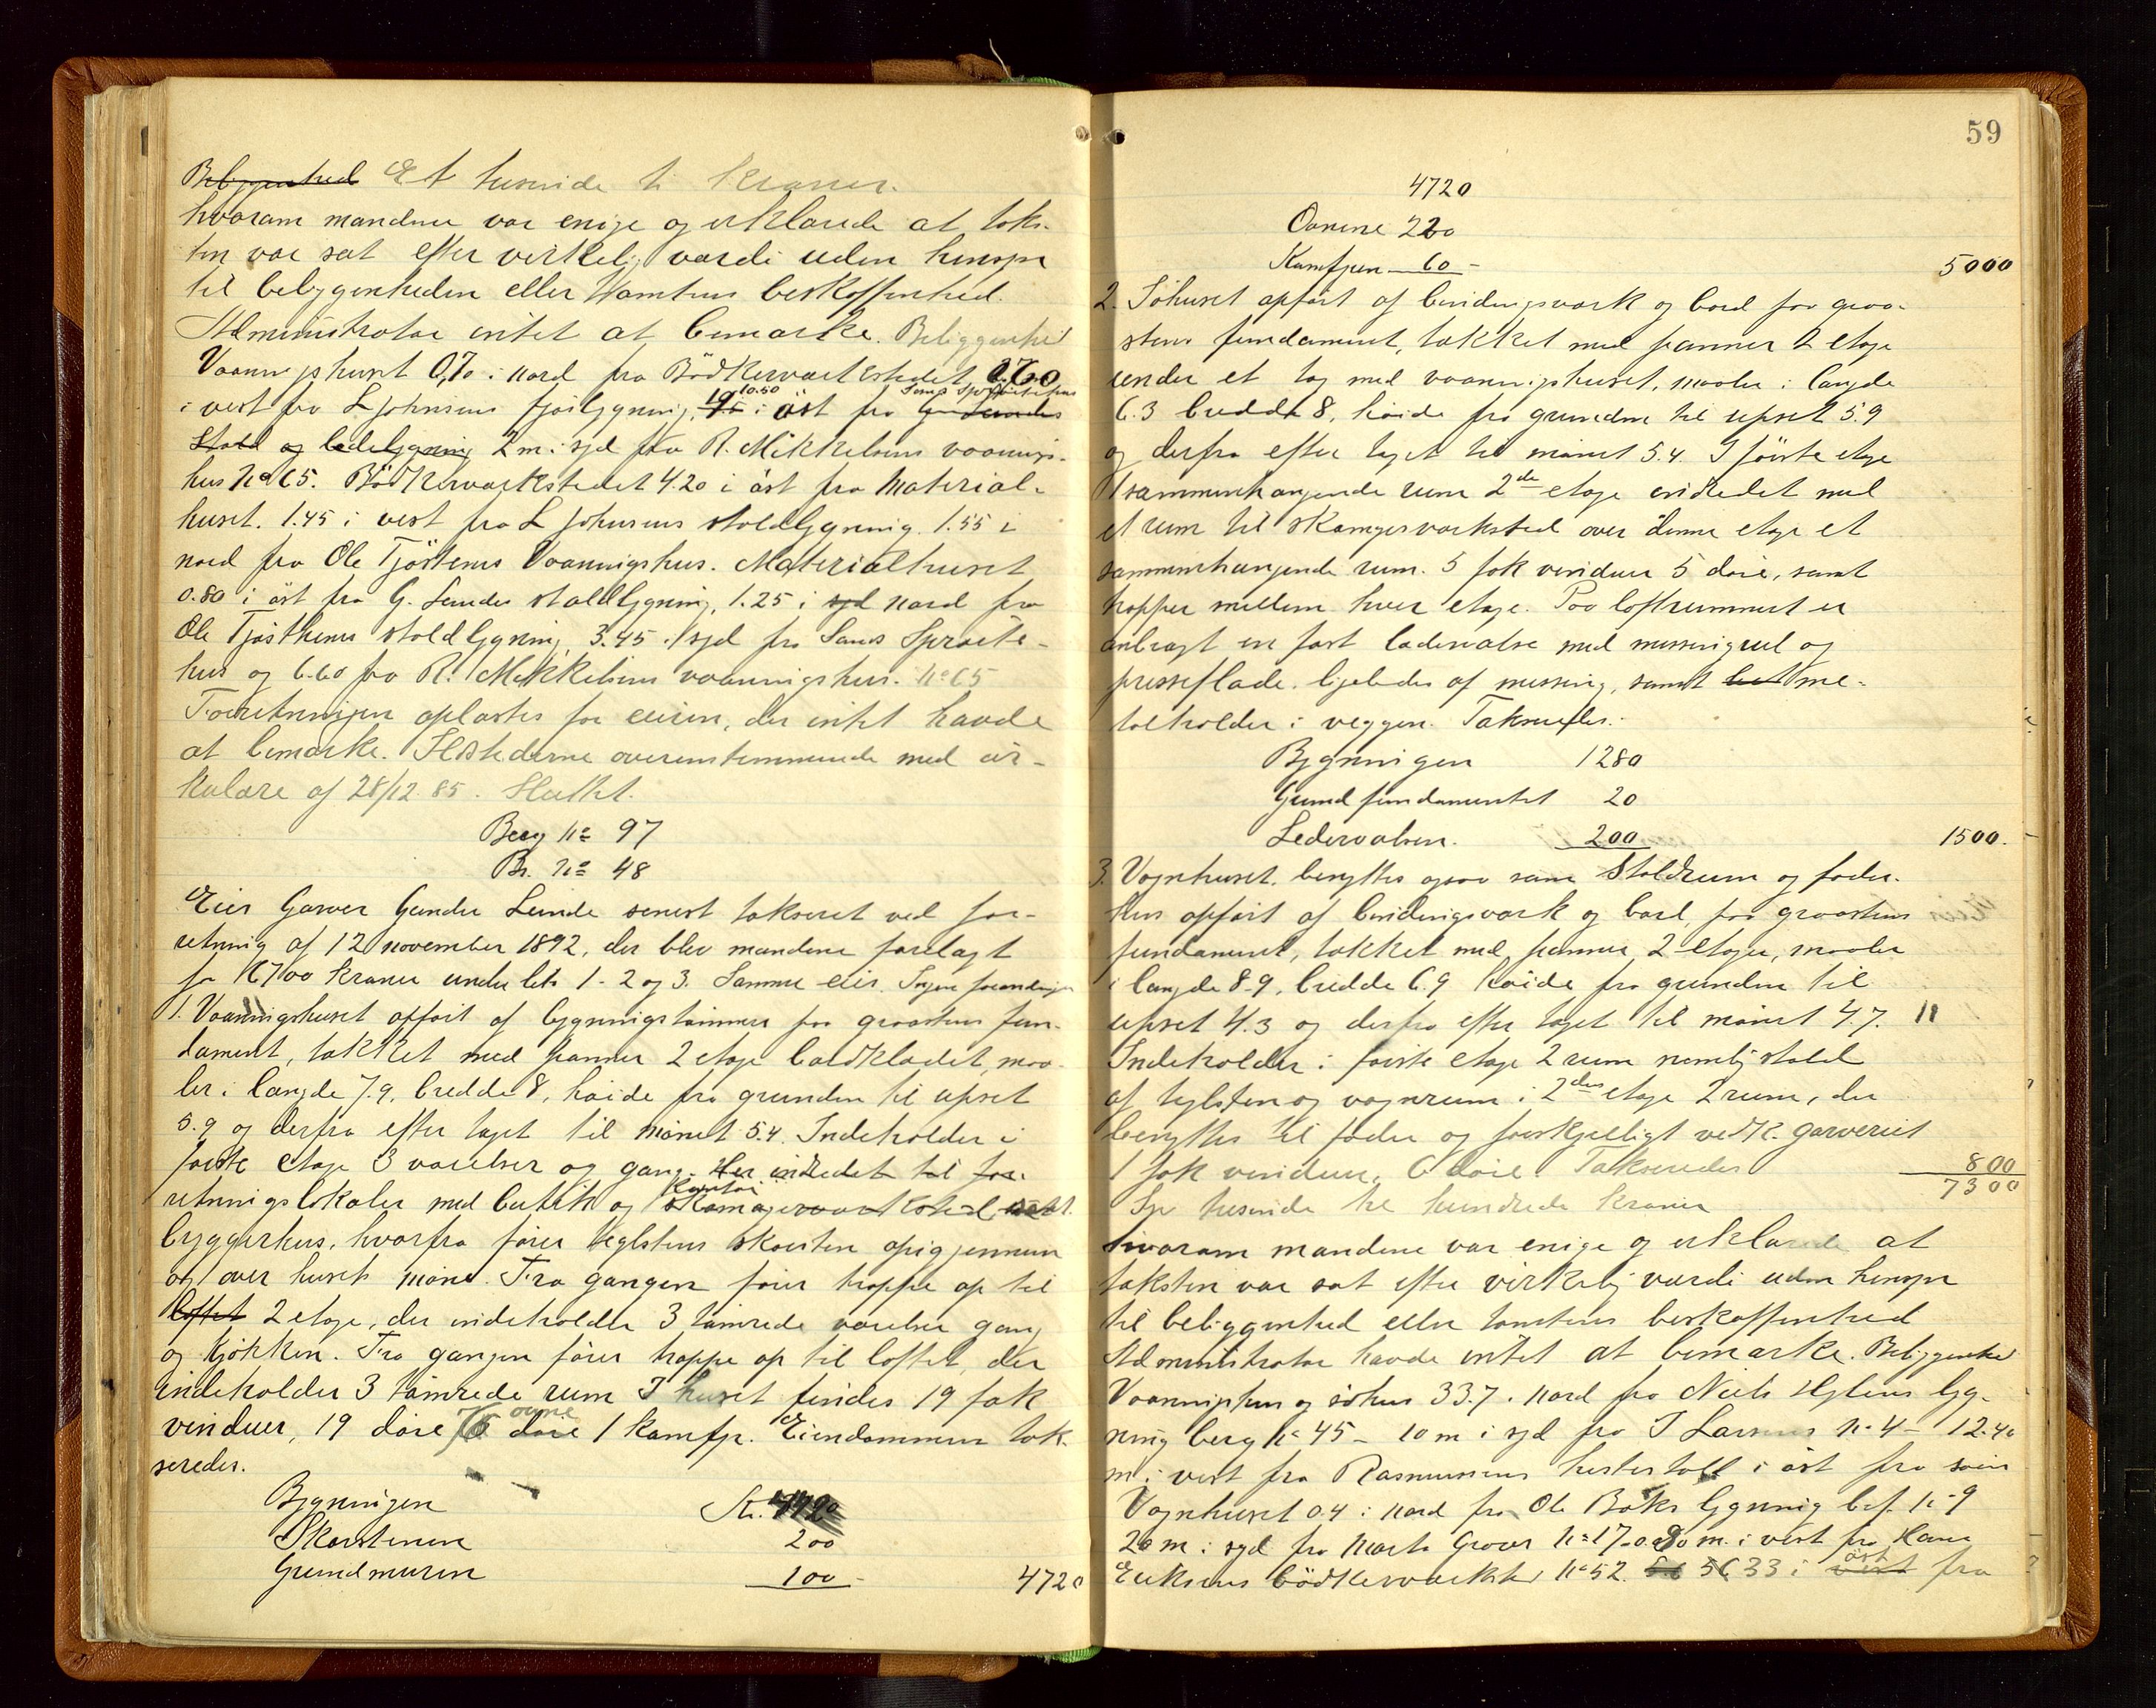 Et tusinde ti Kroner.
hvorom mændene var enige og erklærede at tak-
ten var sat efter virkelig værdi uden hensyn
til bebygenheden eller tomtens beskaffenhed.
Administrator intet at bemærke. Beliggenhed
Vaaningshuset 0,70 i nord fra Bödkerværkstedet 2.60
i vest fra L Johnsens fjösbygning, 10.50 i öst fra
Stald og ladebygning 2 m i syd fra R. Mikkelsens vaanings-
hus No 65. Bödkerværkstedet 4.20 i öst fra Material-
huset. 1.45 i vest fra L Johnsens staldbygning. 1.55 i
nord fra Ole Tjöstens Vaaningshus. Materialhuset
0.80 i öst fra G. Lundes staldbygning, 1.25 i syd nord fra
Ole Tjösthens staldbygning 3.45 i syd fra Sands Sprøite-
hus og 6.60 fra R. Mikkelsens vaaningshus. No 65
Forretningen oplæstes for eieren, der intet havde
at bemærke. Ildstederne overenstemmende med cir-
kulære af 28/12 85. Sluttet.
Berg No 97
Br. No 48
Eier Garver Gunder Lunde senest takseret ved for-
retning af 12 november 1892, der blev mændene forelagt
for 6700 kroner under litr 1-2 og 3. Samme eier. Ingen forandringer
1. Vaaningshuset opført af bygningstømmer paa graastens fun-
dament, tækket med panner 2 etage bordklædet, maa-
ler i længde 7.9, bredde 8, höide fra grunden til upset
5.9 og derfra efter taget til mönet 5.4. Indeholder i
første etage 3 værelser og gang. Her indredet til for-
retningslokaler med butik og Kontor skomagerværksted samt
bryggerhus, hvorfra fører teglstens skorsten opigjennem
og over husets möne. Fra gangen fører trappe op til
loftet 2 etage, der indeholder 3 tømrede værelser gang
og kjøkken. Fra gangen fører trappe op til loftet, der
indeholder 3 tømrede rum I huset findes 19 fak
vinduer, 19 döre 6 ovne 1 kamfyr. Eiendommen tak-
seredes.
Bygningen Kr. 4420
Skorstenen 200
Grundmuren 100 4720
59
4720
Ovnene 220
Kamfyren 60 - 5000
2. Söhuset opfört af bindingsværk og bord paa graa-
stens fundament, tækket med panner 2 etage
under et tag med vaaningshuset, maaler i længde
6.3 bredde 8, höide fra grunden til upset 5.9
og derfra efter taget til mönet 5.4. I förste etage
1 sammenhængende rum 2de etage indredet med
et rum til skomagerværksted over denne etage et
sammenhængende rum. 5 fak vinduer 5 döre, samt
trapper mellem hver etage. Paa loftrummet er
anbragt en fast lædervalse med messingrul og
presseflade. ligeledes af messing, samt
i veggen. Takseredes.
Bygningen 1280
Grundfundamentet 20
Ledervalsen. 200 1500.
3. Vognhuset. benyttes ogsaa som Staldrum og foder-
hus opført af bindingsværk og bord, paa graastens
fundament, tækket med panner, 2 etager, maaler
i længde 8.9, bredde 6.9 höide fra grunden til
upset 4.3 og derfra efter taget til mönet 4.7.
Indeholder i förste etage 2 rum nemlig stald
af teglsten og vognrum i 2den etage 2 rum, der
benyttes til foder og forskjelligt vedk. garveriet
1 fak vinduer, 6 döre Takseredes 800
7300
Syv tusinde tre hundrede kroner
hvorom mændene var enige og erklærede at
taksten var sat efter virkelig værdi uden hensyn
til beliggenhed eller tomtens beskaffenhed
Administrator havde intet at bemærke. Beliggenhed
Vaaningshus og söhus 33.7 i nord fra Niels Hylens byg-
ning berg No 45 - 10 m i syd fra I Larsens No 4 - 12.40
m i vest fra Rasmussens hestestald i öst fra söin
Vognhuset 0.4 i nord fra Ole Böks bygning bef. No 9
20 m i syd fra No 17 - 0.80 m. i vest fra Hans
Eriksens bödkerværksted No 52. 56 33 i öst fra